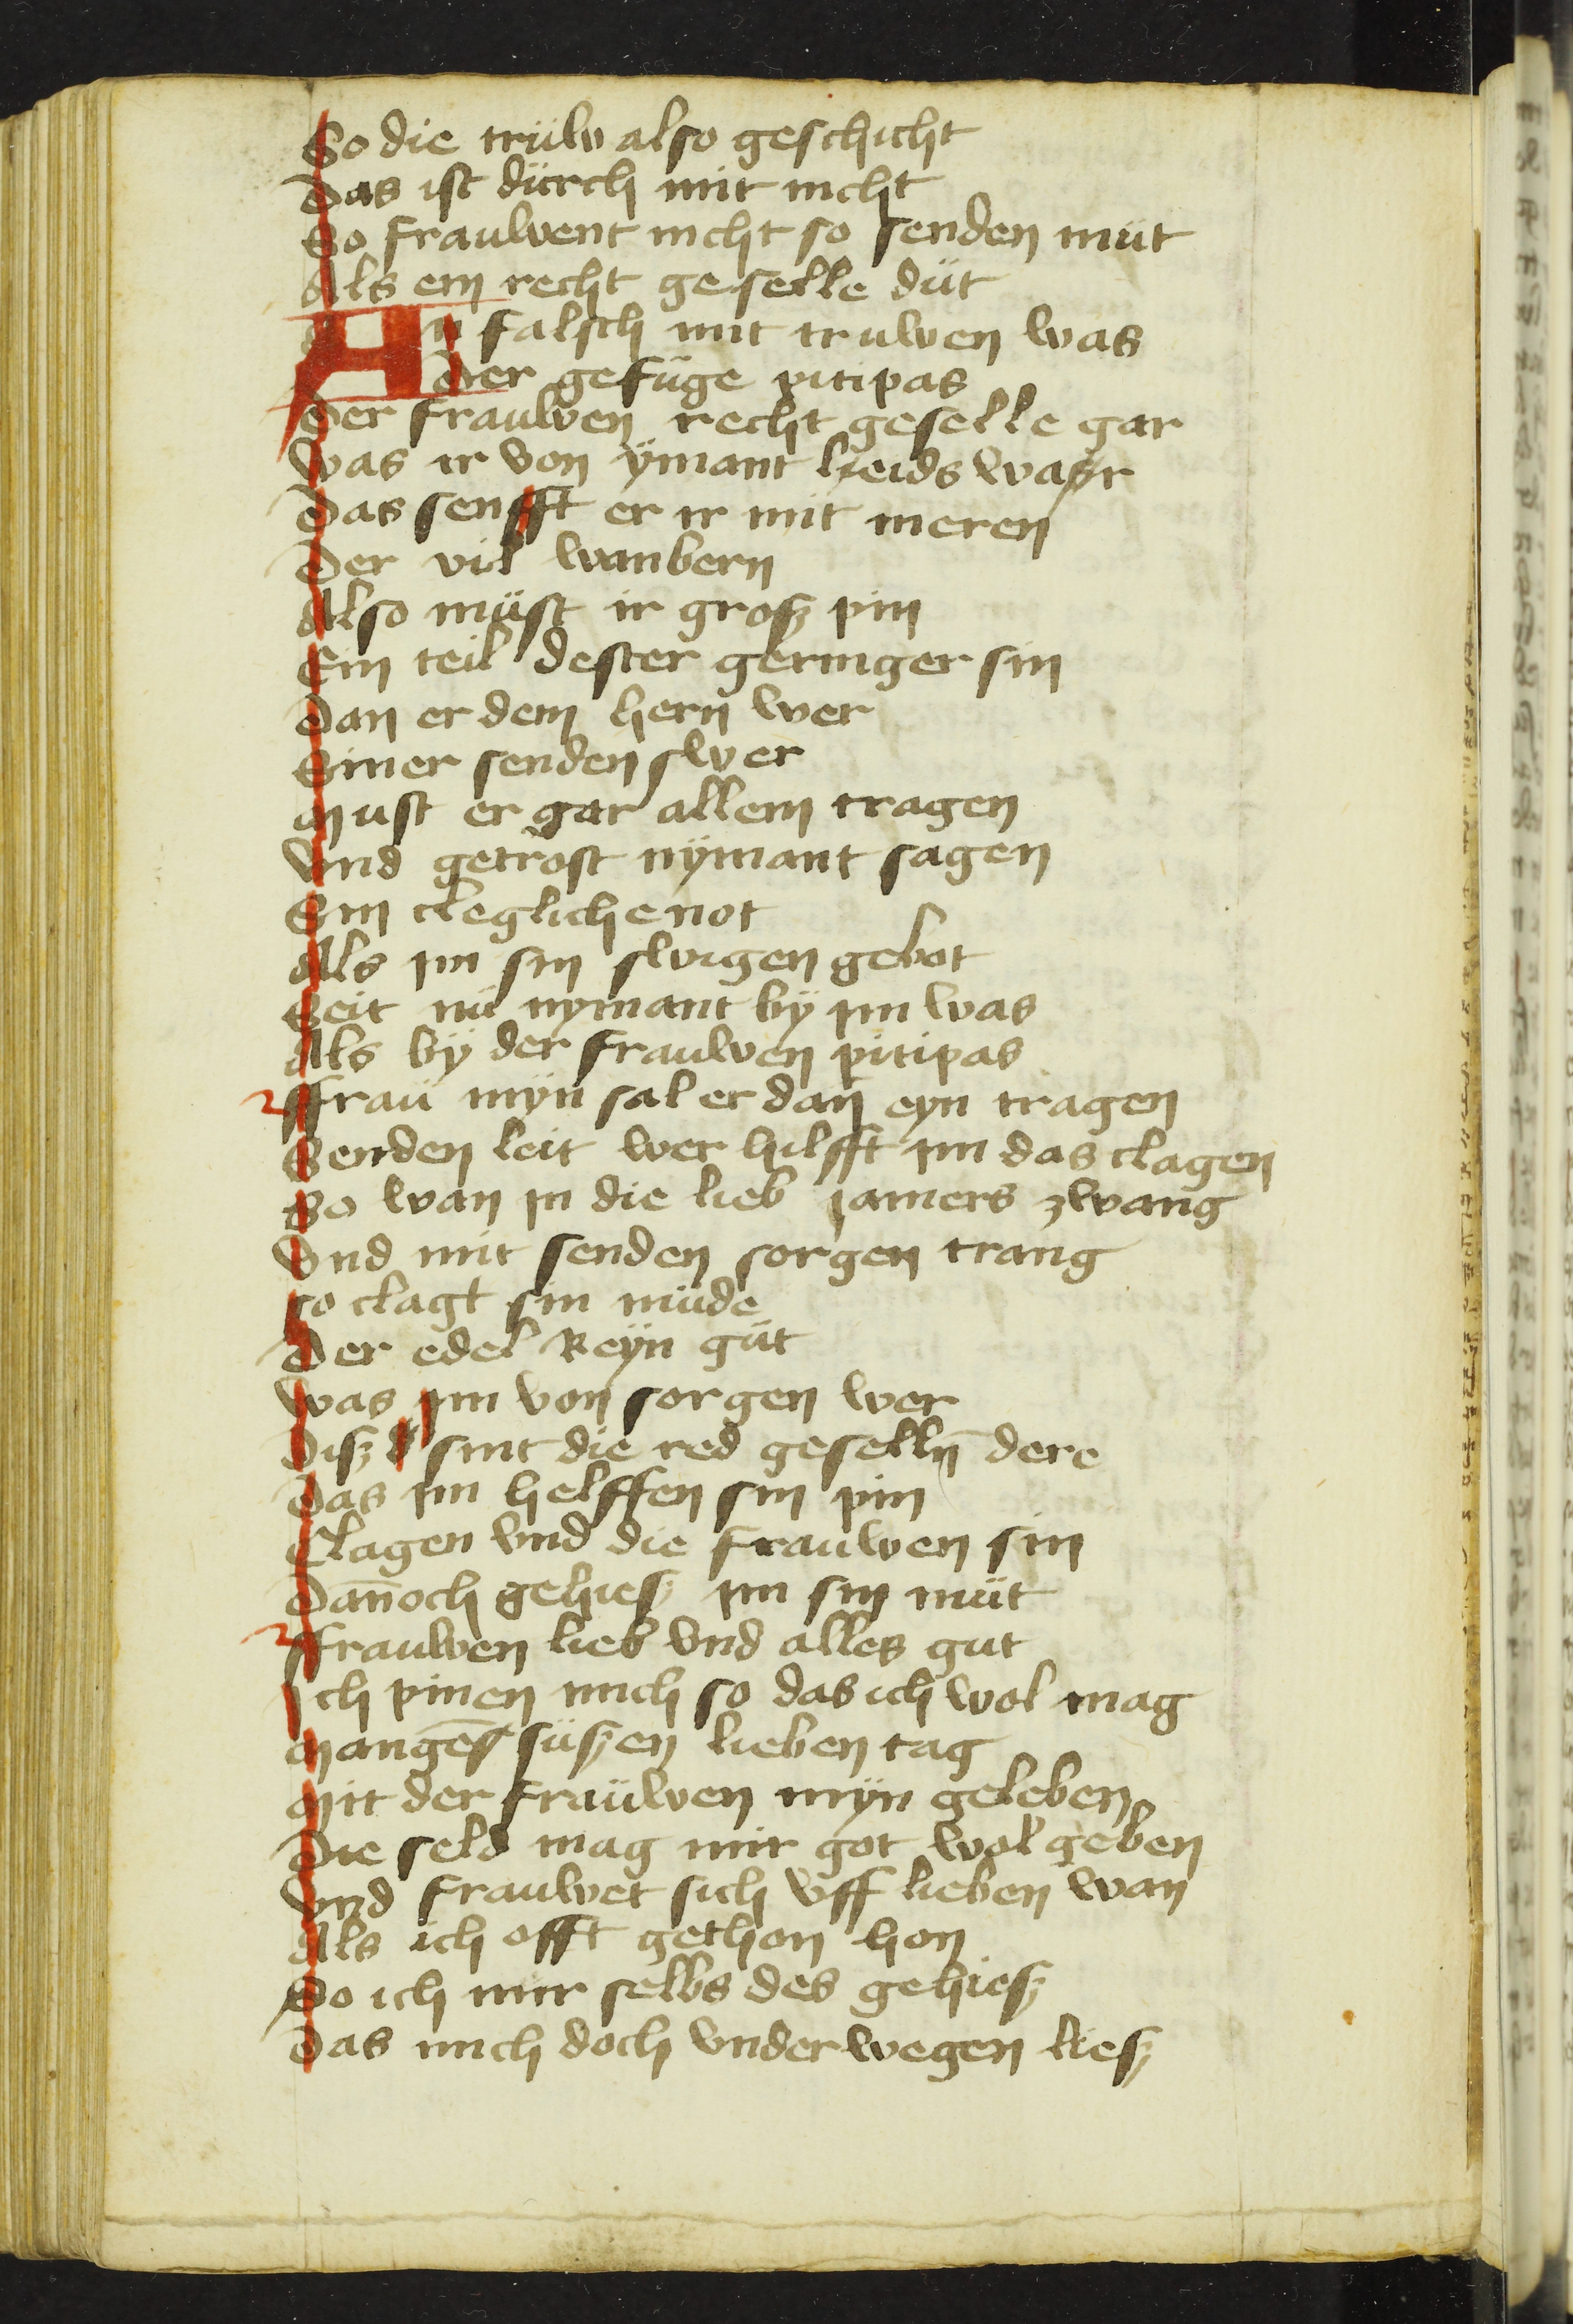 So die trüw also geschicht
Das ist dürch mit nicht
So frauwent nicht so senden müt
Als ein recht geselle düt
An falsch mit truwen was
Der gefüge pitipas
Der frauwen recht geselle gar
Was ir von ÿmant leids war
Das senfft er ir mit meren
Der vil wanbern
Also müst ir grosz pin
Ein teil dester geringer sin
Dan er dem hern wer
Siner senden swer
Must er gar allein tragen
Vnd getrost nÿmant sagen
Sin clegliche not
Als im sin swigen gebot
Seit nü nymant bÿ im was
Als bÿ der frauwen pitipas
Ffraü mÿn sal er dan eyn tragen
Senden leit wer hilfft im das clagen
So wan in die lieb jamers zwang
Vnd mit senden sorgen trang
So clagt sin müde
Der edel Reÿn güt
Was im von sorgen wer
Disz sint die red geselln̄ dere
Das im helffen sin pin
Clagen vnd die frauwen sin
Dan̄och gehiesz im sin müt
Ffrauwen lieb vnd alles gut
Ich pinen mich so das ich wol mag
Mangē süszen lieben tag
Mit der fraüwen mÿn geleben
Die seld mag mir got wol geben
Vnd frauwet sich vff lieben wan
Als ich offt gethon hon
Do ich mir selbs des gehiesz
Das mich doch vnderwegen liesz